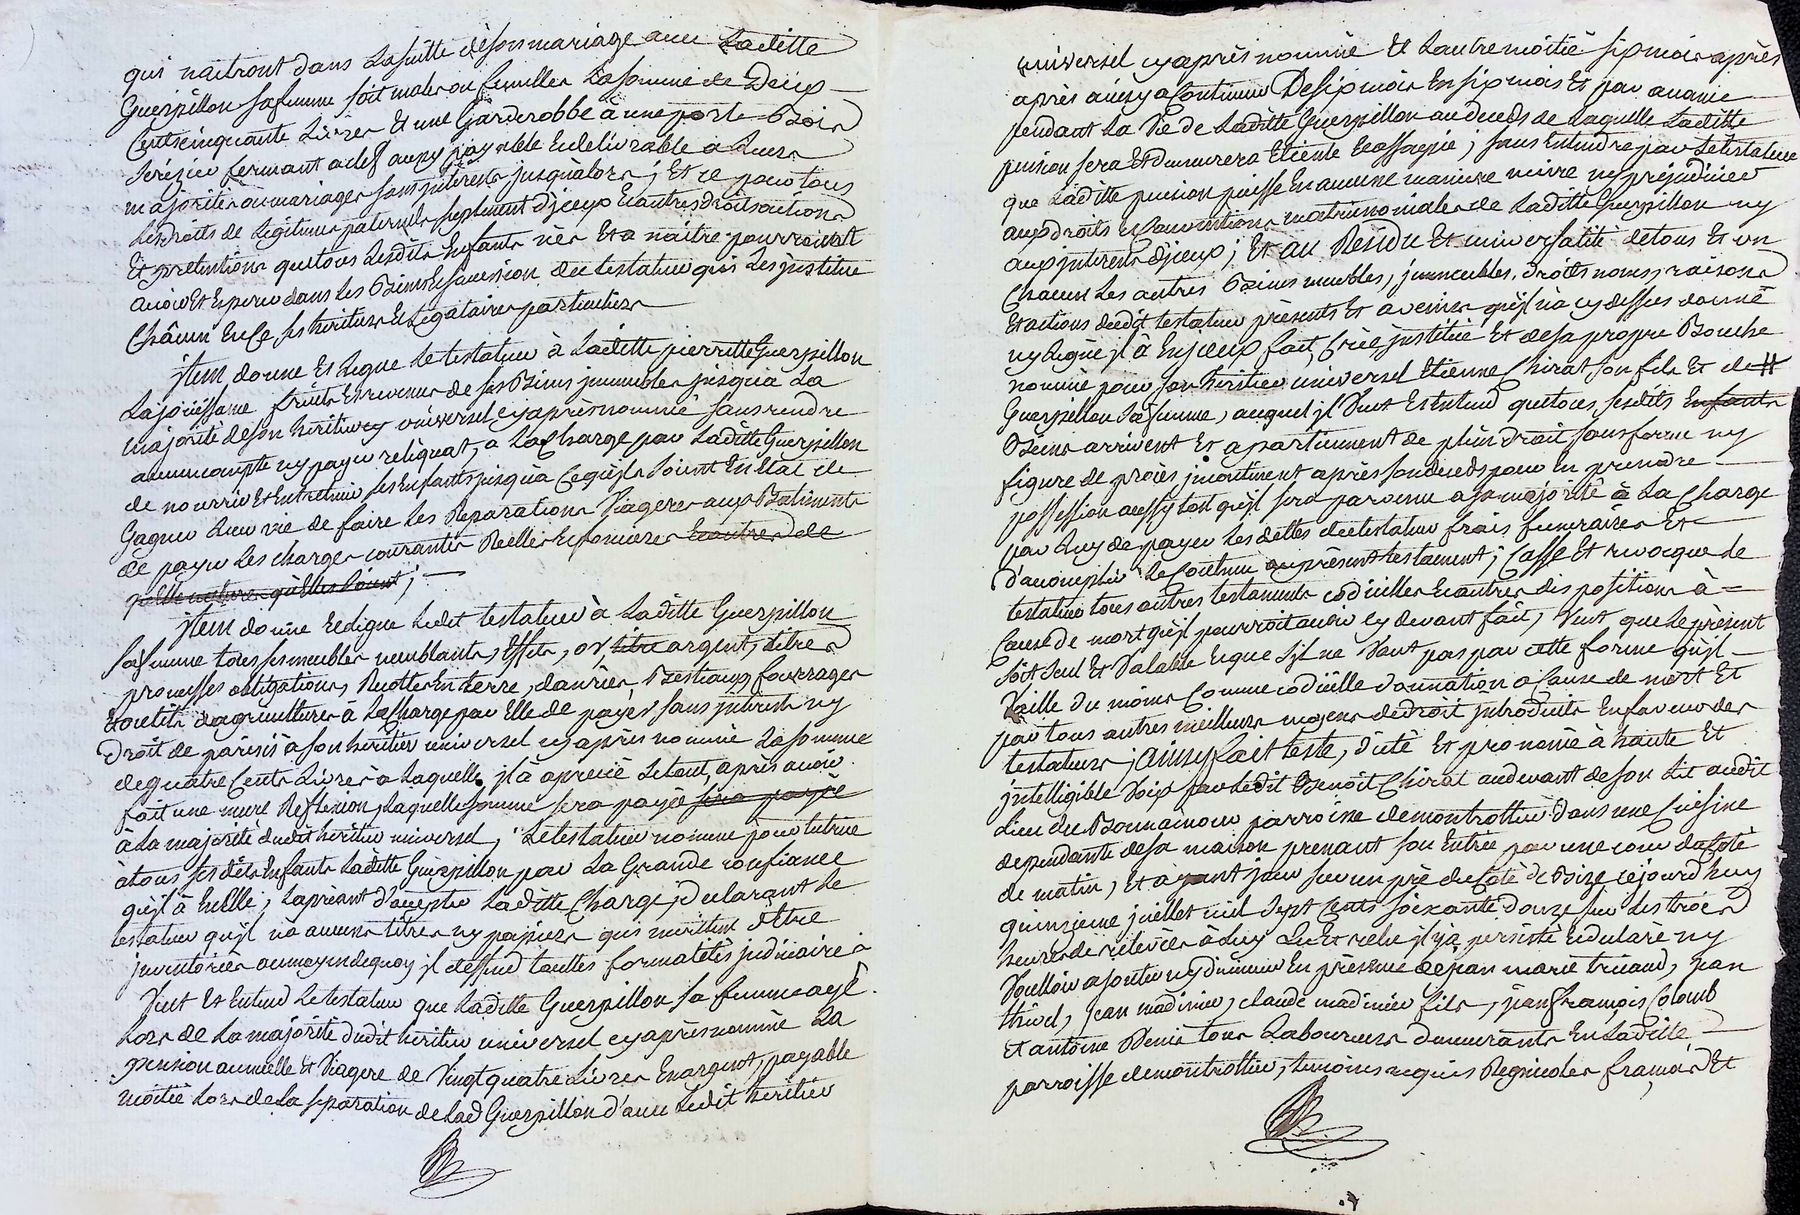 qui naitront dans La suitte de son mariage avec Laditte
Guerpillon sa femme soit males ou femelles La somme de Deux
Cents cinquante Livres Et une Garderobbe à une porte Bois
Serizier fermant a clef aussy payable Et delivrable a Leurs
majorités ou mariages sans interets jusqualors ; Et ce pour tous
Les droits de Legitimes paternels suplement d'jceux Et autres droits actions
Et pretentions que tous Lesdits Enfants nés Et a naitre pourroient
avoir Et Esperer dans Les Biens Et succession du testateur qui Les jnstitue
Châcun En Ce ses heritiers Et Legataires particuliers
jtem donne Et Legue Le testateur à Laditte pierrette Guerpillon
La jouissance fruits Et revenus de ses Biens jmmeubles jusqu'a La
majorité de son heritier universel cy après nommé sans rendre
aucun compte ny payer reliquat, a La Charge par Laditte Guerpillon
de nourrir Et Entretenir ses Enfants jusqu'à Ce qu'ils soient En Etat de
Gagner Leur vie de faire Les Reparations Viageres aux Batiments
de payer Les charges courantes Réelles Et foncieres Et autres de
quelle nature qu'elles soient ;
jtem donne Et Legue Ledit testateur à Laditte Guerpillon
sa femme tous ses meubles meublants, Effets, or, titre argent, titres
promesses obligations, Recoltes En terre, danrées, Bestiaux fourrages
Et outils d'agricultures à La Charge par Elle de payer sans jnterets ny
Droit de parisis à son heritier universel cy après nommé La somme
de quatre Cents Livres à Laquelle jl à aprecié Le tout, après avoir
fait une mure Reflexion, Laquelle somme sera payée sera payée
à La majorité dudit heritier universel, Le testateur nomme pour tutrice
à tous ses dits Enfants Laditte Guerpillon par La Grande confiance
qu'jl à En Elle ; La priant d'accepter Laditte Charge, declarant Le
testateur qu'jl n'a aucuns titres ny papiers qui meritent d'Etre
jnventoriés au moyen de quoy jl deffend touttes formalités judiciaires
Veut Et Entend Le testateur que Laditte Guerpillon sa femme aye
Lors de La majorité dudit heritier universel cy après nommé La
pension annuelle Et Viagere de Vingt quatre Livres En argent, payable
moitié Lors de La separation de Lad Guerpillon d'avec Ledit heritier
universel cy après nommé Et Lautre moitié six mois après
après ainsy a Continuer De six mois En six mois Et par avance
pendant La Vie de Laditte Guerpillon au deceds de Laquelle Laditte
pension sera Et demeurera Eteinte ; sans Entendre par Le testateur
que Laditte pension puisse En aucune maniere nuire ny prejudicier
aux droits Et conventions matrimoniales de Laditte Guerpillon ny
aux jnterets d'jceux ; Et au Residu Et universalité de tous Et un
Chacun Les autres Biens meubles, jmmeubles, droits noms, raisons
Et actions dudit testateur présents Et a venirs qu'jl n'à cy dessus donné
ny Legué jl à En jceux fait, Créé, jnstitué Et de sa propre Bouche
nommé pour son heritier universel Etienne Chirat son fils Et de #
Guerpillon sa femme, auquel jl Veut Et Entend que tous ses dits Enfants
Biens arrivent Et apartiennent de plein droit sans forme ny
figure de procès jncontinent après son deceds pour En prendre
possession aussy tost qu'jl sera parvenu a sa majorité à La Charge
par Luy de payer Les dettes du testateur frais funeraires Et
d'accomplir Le Contenu au présent testament ; Casse Et revocque Le
testateur tous autres testaments codicilles Et autres dispositions à =
Cause de mort qu'jl pourroit avoir cy devant fait, Veut que Le présent
soit seul Et Valable Et que s'jl ne Vaut pas par cette forme qu'jl
Vaille du moins Comme codicille donnation a Cause de mort Et
par tous autres meilleurs moyens de droit jntroduits En faveur des
testateurs ; ainsy fait testé, dicté Et prononcé à haute Et
jntelligible Voix par Ledit Benoît Chirat au devant de son Lit audit
Lieu du Bonnamour parroisse de montrottier dans une Cuisine
dependante de sa maison prenant son Entrée par une cour du Coté
de matin, Et ayant jour sur un pré du Coté de Bize cejourd'huy
quinzieme juillet mil sept Cents soixante douze sur Les trois
heures de relevée à Luy Lu Et relu jl y à persisté Et declaré ny
Voulloir ajouter ny diminuer En présence de jean marie triaud, jean
thivel, jean madinier, claude madinier fils, jean françois Colomb
Et antoine Denis tous Laboureurs demeurants En Laditte
parroisse de montrottier, temoins requis Regnicoles françois Et